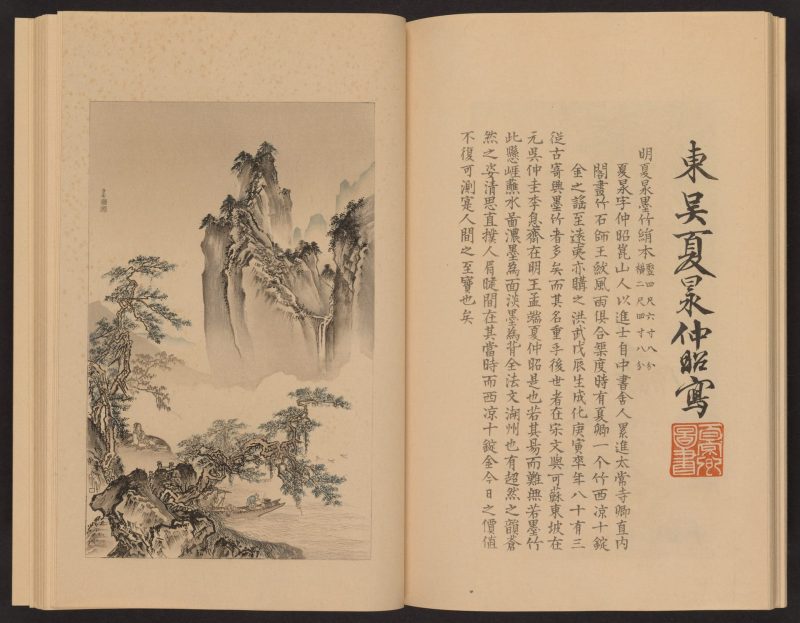 東吴夏㫤仲昭寫
明夏㫤墨竹絹本 豎四尺六寸八分 橫二尺四寸八分
夏㫤字仲昭崑山人以進士自中書舍人累進太常寺卿直内
閣畫竹石師王紱風雨俱合榘度時有夏卿一个竹西凉十錠
金之謠至遠夷亦購之洪武戊辰生成化庚寅卒年八十有三
從古寄興墨竹者多矣而其名重乎後世者在宋文與可蘇東坡在
元吳仲圭李息齋在明王孟端夏仲昭是也若其昜而難無若墨竹
此懸崕蘸水啚濃墨爲面淡墨爲背全法文湖州也有超然之韻蒼
然之姿清思直撲人眉睫間在其當時而西凉十錠金今日之價値
不復可測寔人間之至寶也矣